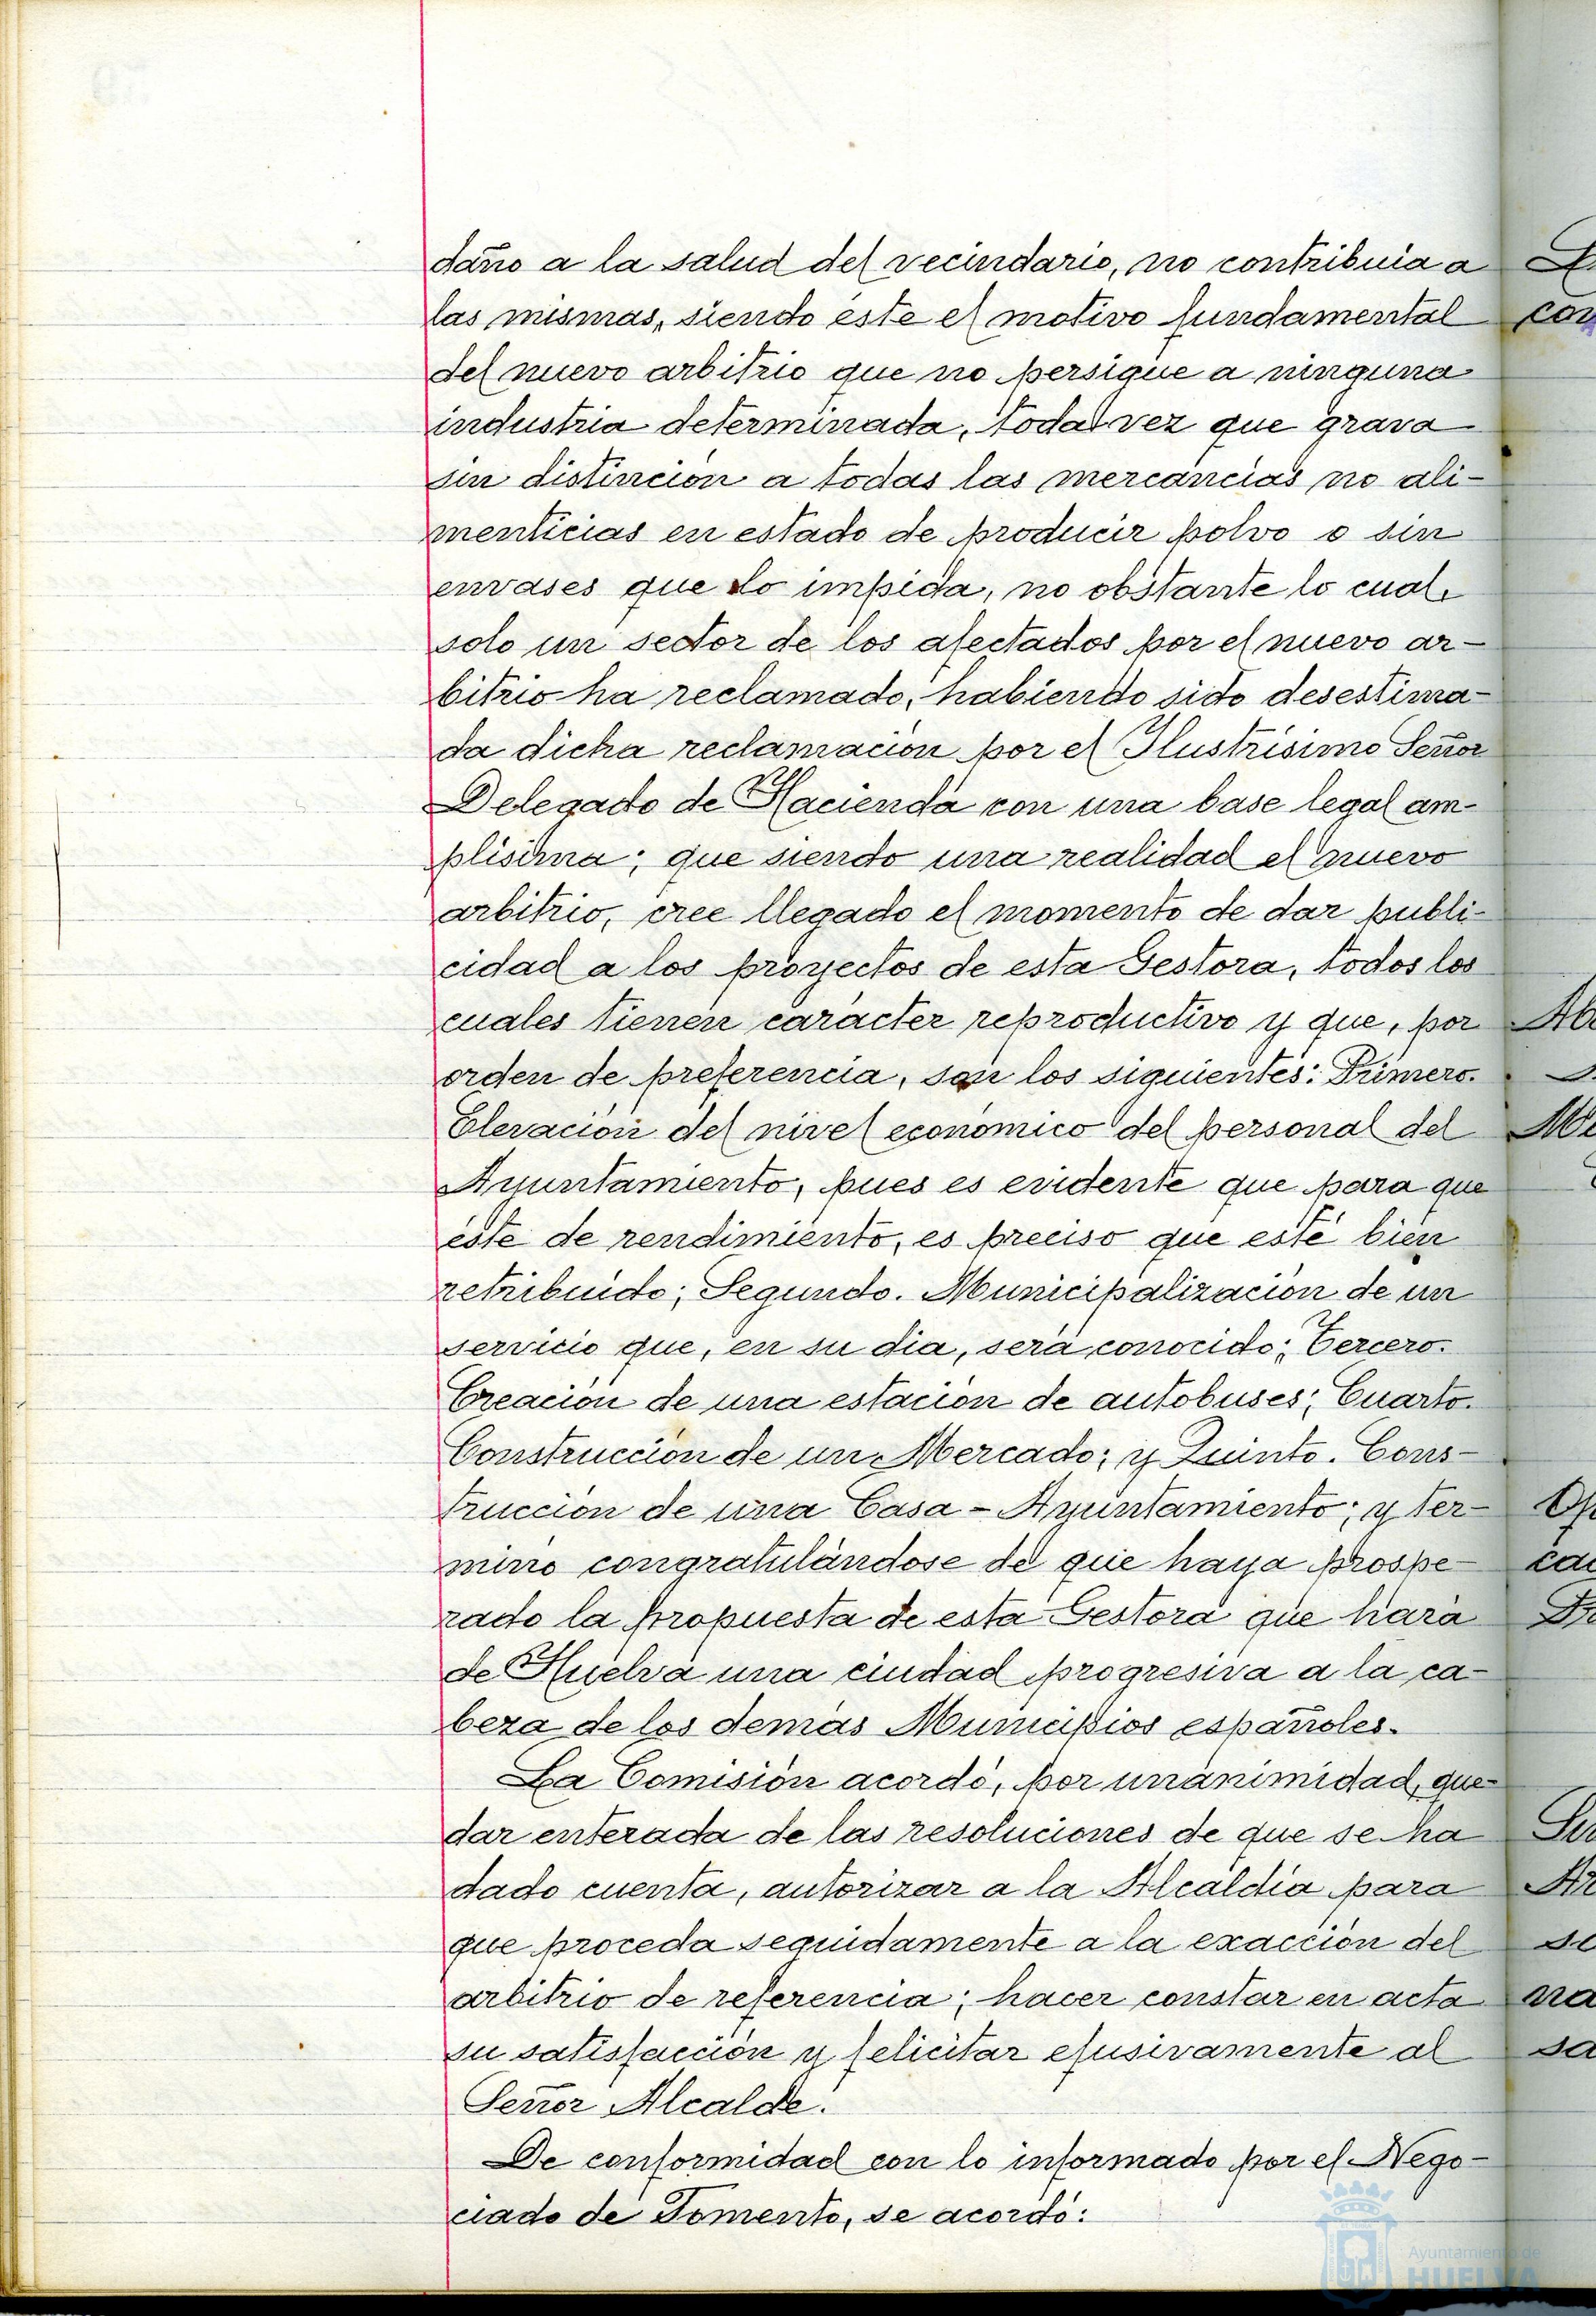 daño a la salud del vecindario, no contribuia a
las mismas, siendo éste el motivo fundamental
del nuevo arbitrio que no persigue a ninguna
industria determinada, toda vez que grava
sin distinción a todas las mercancías no ali-
menticias en estado de producir polvo o sin
envases que lo impida, no obstante lo cual,
solo un sector de los afectados por el nuevo ar-
bitrio ha reclamado, habiendo sido desestima-
da dicha reclamación por el Ilustrísimo Señor
Delegado de Hacienda con una base legal am-
plísima; que siendo una realidad el nuevo
arbitrio, cree llegado el momento de dar publi-
cidad a los proyectos de esta Gestora, todos los
cuales tienen carácter reproductivo y que, por
orden de preferencia, son los siguientes: Primero.
Elevación del nivel económico del personal del
Ayuntamiento, pues es evidente que para que
éste de rendimiento, es preciso que esté bien
retribuido; Segundo. Municipalización de un
servicio que, en su dia, será conocido; Tercero.
Creación de una estación de autobuses; Cuarto.
Construcción de un Mercado; y Quinto. Cons-
trucción de una Casa-Ayuntamiento; y ter-
mino congratulándose de que haya prospe-
rado la propuesta de esta Gestora que hará
de Huelva una ciudad progresiva a la ca-
beza de los demás Municipios españoles.
La Comisión acordó, por unanimidad, que-
dar enterada de las resoluciones de que se ha
dado cuenta, autorizar a la Alcaldía para
que proceda seguidamente a la exacción del
arbitrio de referencia; hacer constar en acta
su satisfacción y felicitar efusivamente al
Señor Alcalde.
De conformidad con lo informado por el Nego-
ciado de Fomento, se acordó:
Ayuntamiento de
HUELVA